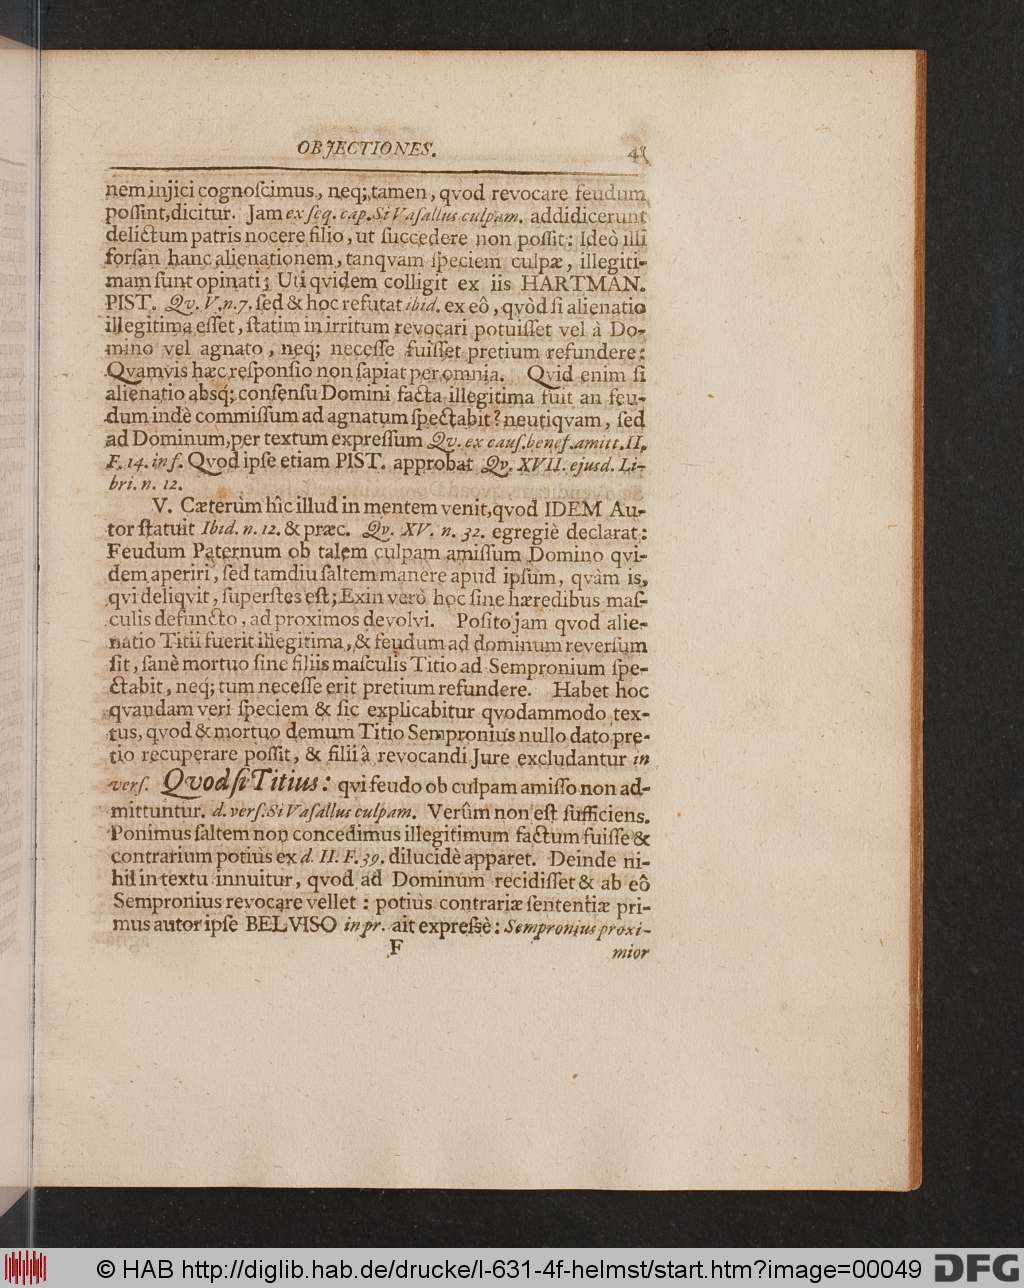 OBJECTIONES. 41
nem injici cognoſcimus, neq; tamen, qvod revocare feudum
poſſint, dicitur. Jam ex ſeq. cap. Si Vaſallus culpam. addidicerunt
delictum patris nocere filio, ut ſuccedere non poſſit: Ideò illi
forſan hanc alienationem, tanqvam ſpeciem culpæ, illegiti-
mam ſunt opinati; Uti qvidem colligit ex iis HARTMAN.
PIST. Qv. V. n. 7. ſed & hoc refutat ibid. ex eô, qvòd ſi alienatio
illegitima eſſet, ſtatim in irritum revocari potuiſſet vel à Do-
mino vel agnato, neq; neceſſe fuiſſet pretium refundere:
Qvamvis hæc reſponſio non ſapiat per omnia. Qvid enim ſi
alienatio absq́; conſenſu Domini facta illegitima fuit an feu-
dum indè commiſſum ad agnatum ſpectabit? neutiqvam, ſed
ad Dominum, per textum expreſſum Qv. ex cauſ. benef. amitt. II.
F. 14. inf. Qvod ipſe etiam PIST. approbat Qv. XVII. ejusd. Li-
bri. n. 12.
V. Cæterùm hîc illud in mentem venit, qvod IDEM Au-
tor ſtatuit Ibid. n. 12. & præc. Qv. XV. n. 32. egregiè declarat:
Feudum Paternum ob talem culpam amiſſum Domino qvi-
dem aperiri, ſed tamdiu ſaltem manere apud ipſum, qvàm is,
qvi deliqvit, ſuperſtes eſt; Exin verò hoc ſine hæredibus maſ-
culis defuncto, ad proximos devolvi. Poſito jam qvod alie-
natio Titii fuerit illegitima, & feudum ad dominum reverſum
ſit, ſanè mortuo ſine filiis maſculis Titio ad Sempronium ſpe-
ctabit, neq́; tum neceſſe erit pretium refundere. Habet hoc
qvandam veri ſpeciem & ſic explicabitur qvodammodo tex-
tus, qvod & mortuo demum Titio Sempronius nullo dato pre-
tio recuperare poſſit, & filii â revocandi Jure excludantur in
verſ. Qvod ſi Titius: qvi feudo ob culpam amiſſo non ad-
mittuntur. d. verſ. Si Vaſallus culpam. Verûm non eſt ſufficiens.
Ponimus ſaltem non concedimus illegitimum factum fuiſſe &
contrarium potiùs ex d. II. F. 39. dilucidè apparet. Deinde ni-
hil in textu innuitur, qvod ad Dominum recidiſſet & ab eô
Sempronius revocare vellet: potius contrariæ ſententiæ pri-
mus autor ipſe BELVISO in pr. ait expreſsè: Sempronius proxi-
F mior
© HAB http://diglib.hab.de/drucke/l-631-4f-helmst/start.htm?image=00049 DFG